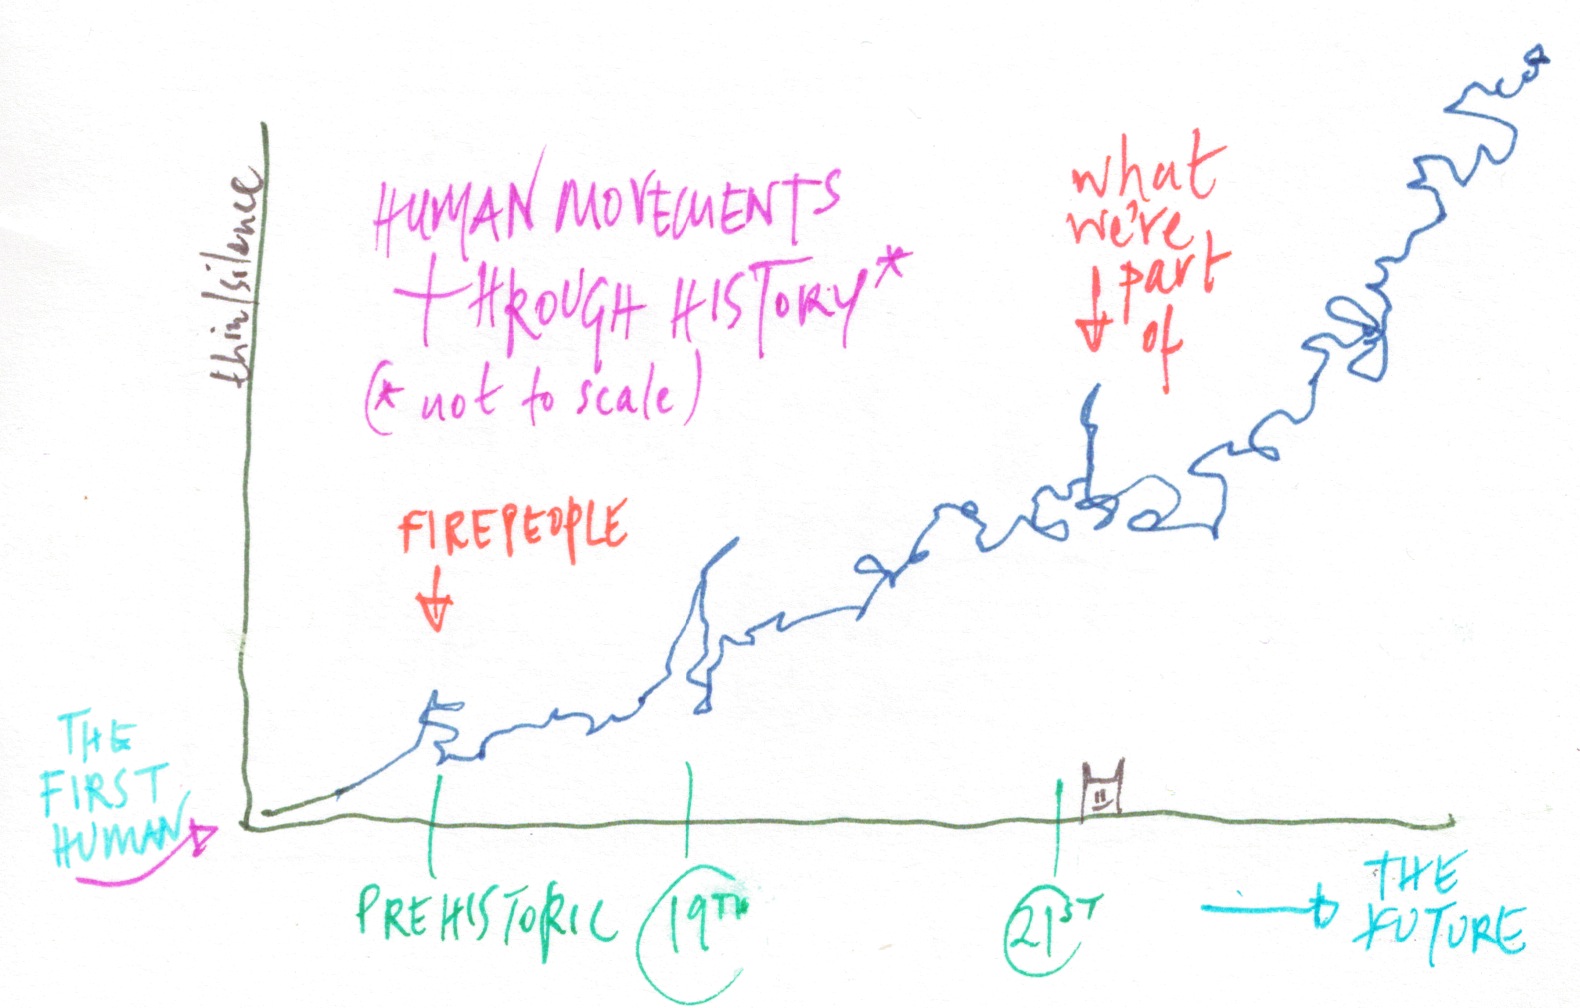 HUMAN MOVEMENTS
THROUGH HISTORY*
(* not to scale)
what
we're
part
of
thin/silence
FIREPEOPLE
THE
FIRST
HUMAN
PREHISTORIC
19TH
21ST
THE
FUTURE